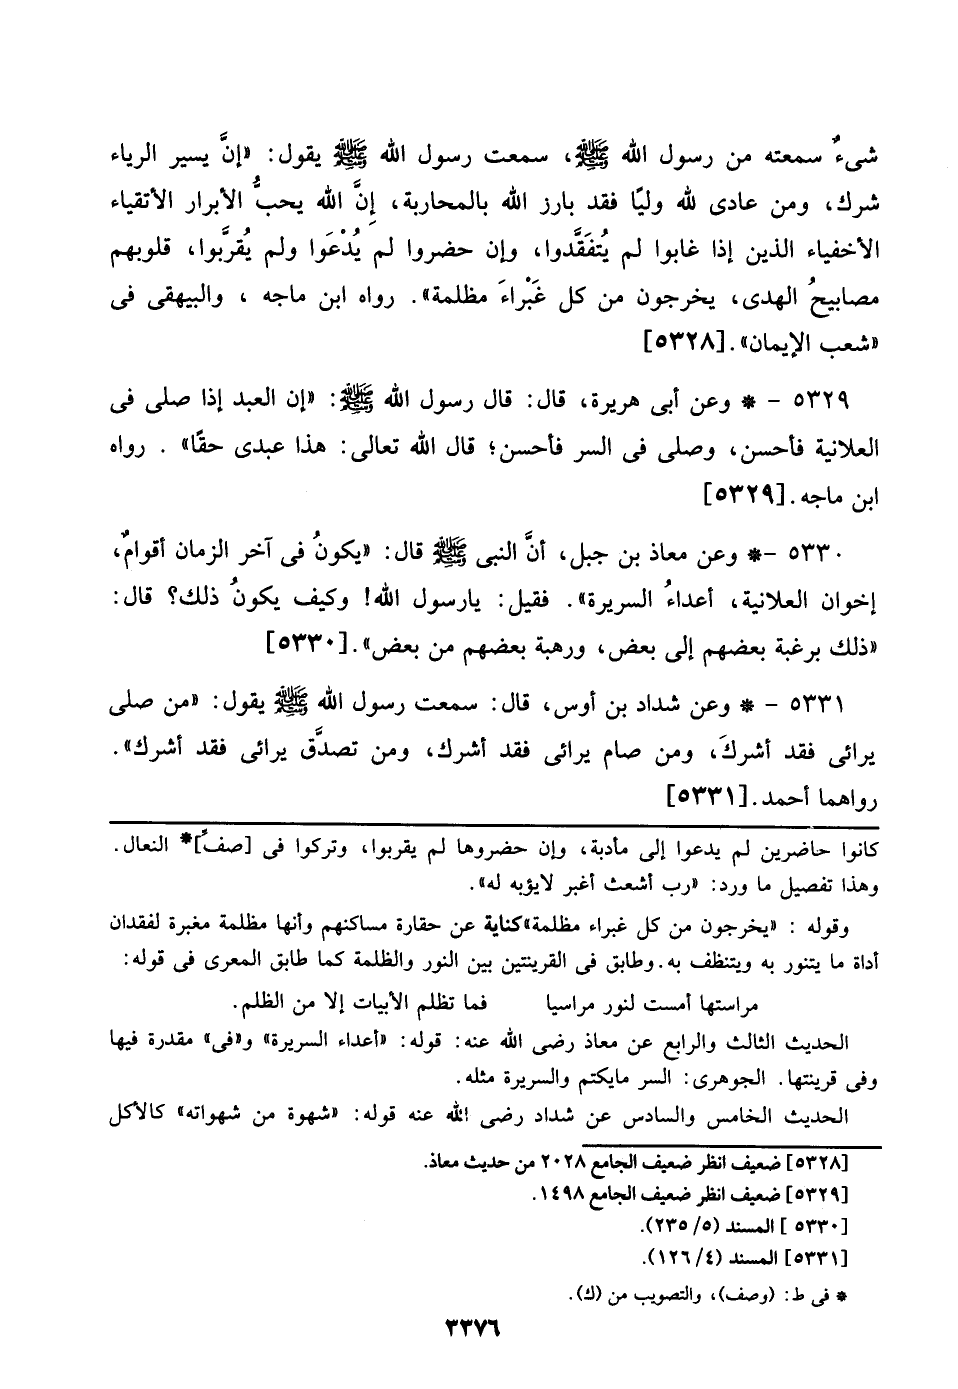 شىءٌ سمعته من رسول الله ﷺ، سمعت رسول الله ﷺ يقول: «إنَّ يسير الرياء
شرك، ومن عادى لله وليًا فقد بارز الله بالمحاربة، إِنَّ الله يحبُّ الأبرار الأتقياء
الأخفياء الذين إذا غابوا لم يُتفَقَّدوا، وإن حضروا لم يُدْعَوا ولم يُقرَّبوا، قلوبهم
مصابيحُ الهدى، يخرجون من كل غَبْراءَ مظلمة». رواه ابن ماجه ، والبيهقى فى
«شعب الإيمان».[٥٣٢٨]
٥٣٢٩ - * وعن أبى هريرة، قال: قال رسول الله ﷺ: «إن العبد إذا صلى فى
العلانية فأحسن، وصلى فى السر فأحسن؛ قال الله تعالى: هذا عبدى حقًا» . رواه
ابن ماجه.[٥٣٢٩]
٥٣٣٠ -* وعن معاذ بن جبل، أنَّ النبى ﷺ قال: «يكونُ فى آخر الزمان أقوامٌ،
إخوان العلانية، أعداءُ السريرة». فقيل: يارسول الله! وكيف يكونُ ذلك؟ قال:
«ذلك برغبة بعضهم إلى بعض، ورهبة بعضهم من بعض».[٥٣٣٠]
٥٣٣١ - * وعن شداد بن أوس، قال: سمعت رسول الله ﷺ يقول: «من صلى
يرائى فقد أشركَ، ومن صام يرائى فقد أشرك، ومن تصدَّق يرائى فقد أشرك».
رواهما أحمد.[٥٣٣١]
كانوا حاضرين لم يدعوا إلى مأدبة، وإن حضروها لم يقربوا، وتركوا فى [صفِّ]* النعال.
وهذا تفصيل ما ورد: «رب أشعث أغبر لايؤبه له».
وقوله : «يخرجون من كل غبراء مظلمة»كناية عن حقارة مساكنهم وأنها مظلمة مغبرة لفقدان
أداة ما يتنور به ويتنظف به.وطابق فى القرينتين بين النور والظلمة كما طابق المعرى فى قوله:
مراستها أمست لنور مراسيا فما تظلم الأبيات إلا من الظلم.
الحديث الثالث والرابع عن معاذ رضى الله عنه: قوله: «أعداء السريرة» و«فى» مقدرة فيها
وفى قرينتها. الجوهرى: السر مايكتم والسريرة مثله.
الحديث الخامس والسادس عن شداد رضى الله عنه قوله: «شهوة من شهواته» كالأكل
[٥٣٢٨] ضعيف انظر ضعيف الجامع ٢٠٢٨ من حديث معاذ.
[٥٣٢٩] ضعيف انظر ضعيف الجامع ١٤٩٨.
[٥٣٣٠ ] المسند (٥/ ٢٣٥).
[٥٣٣١] المسند (٤/ ١٢٦).
* فى ط: (وصف)، والتصويب من (ك).
٣٣٧٦